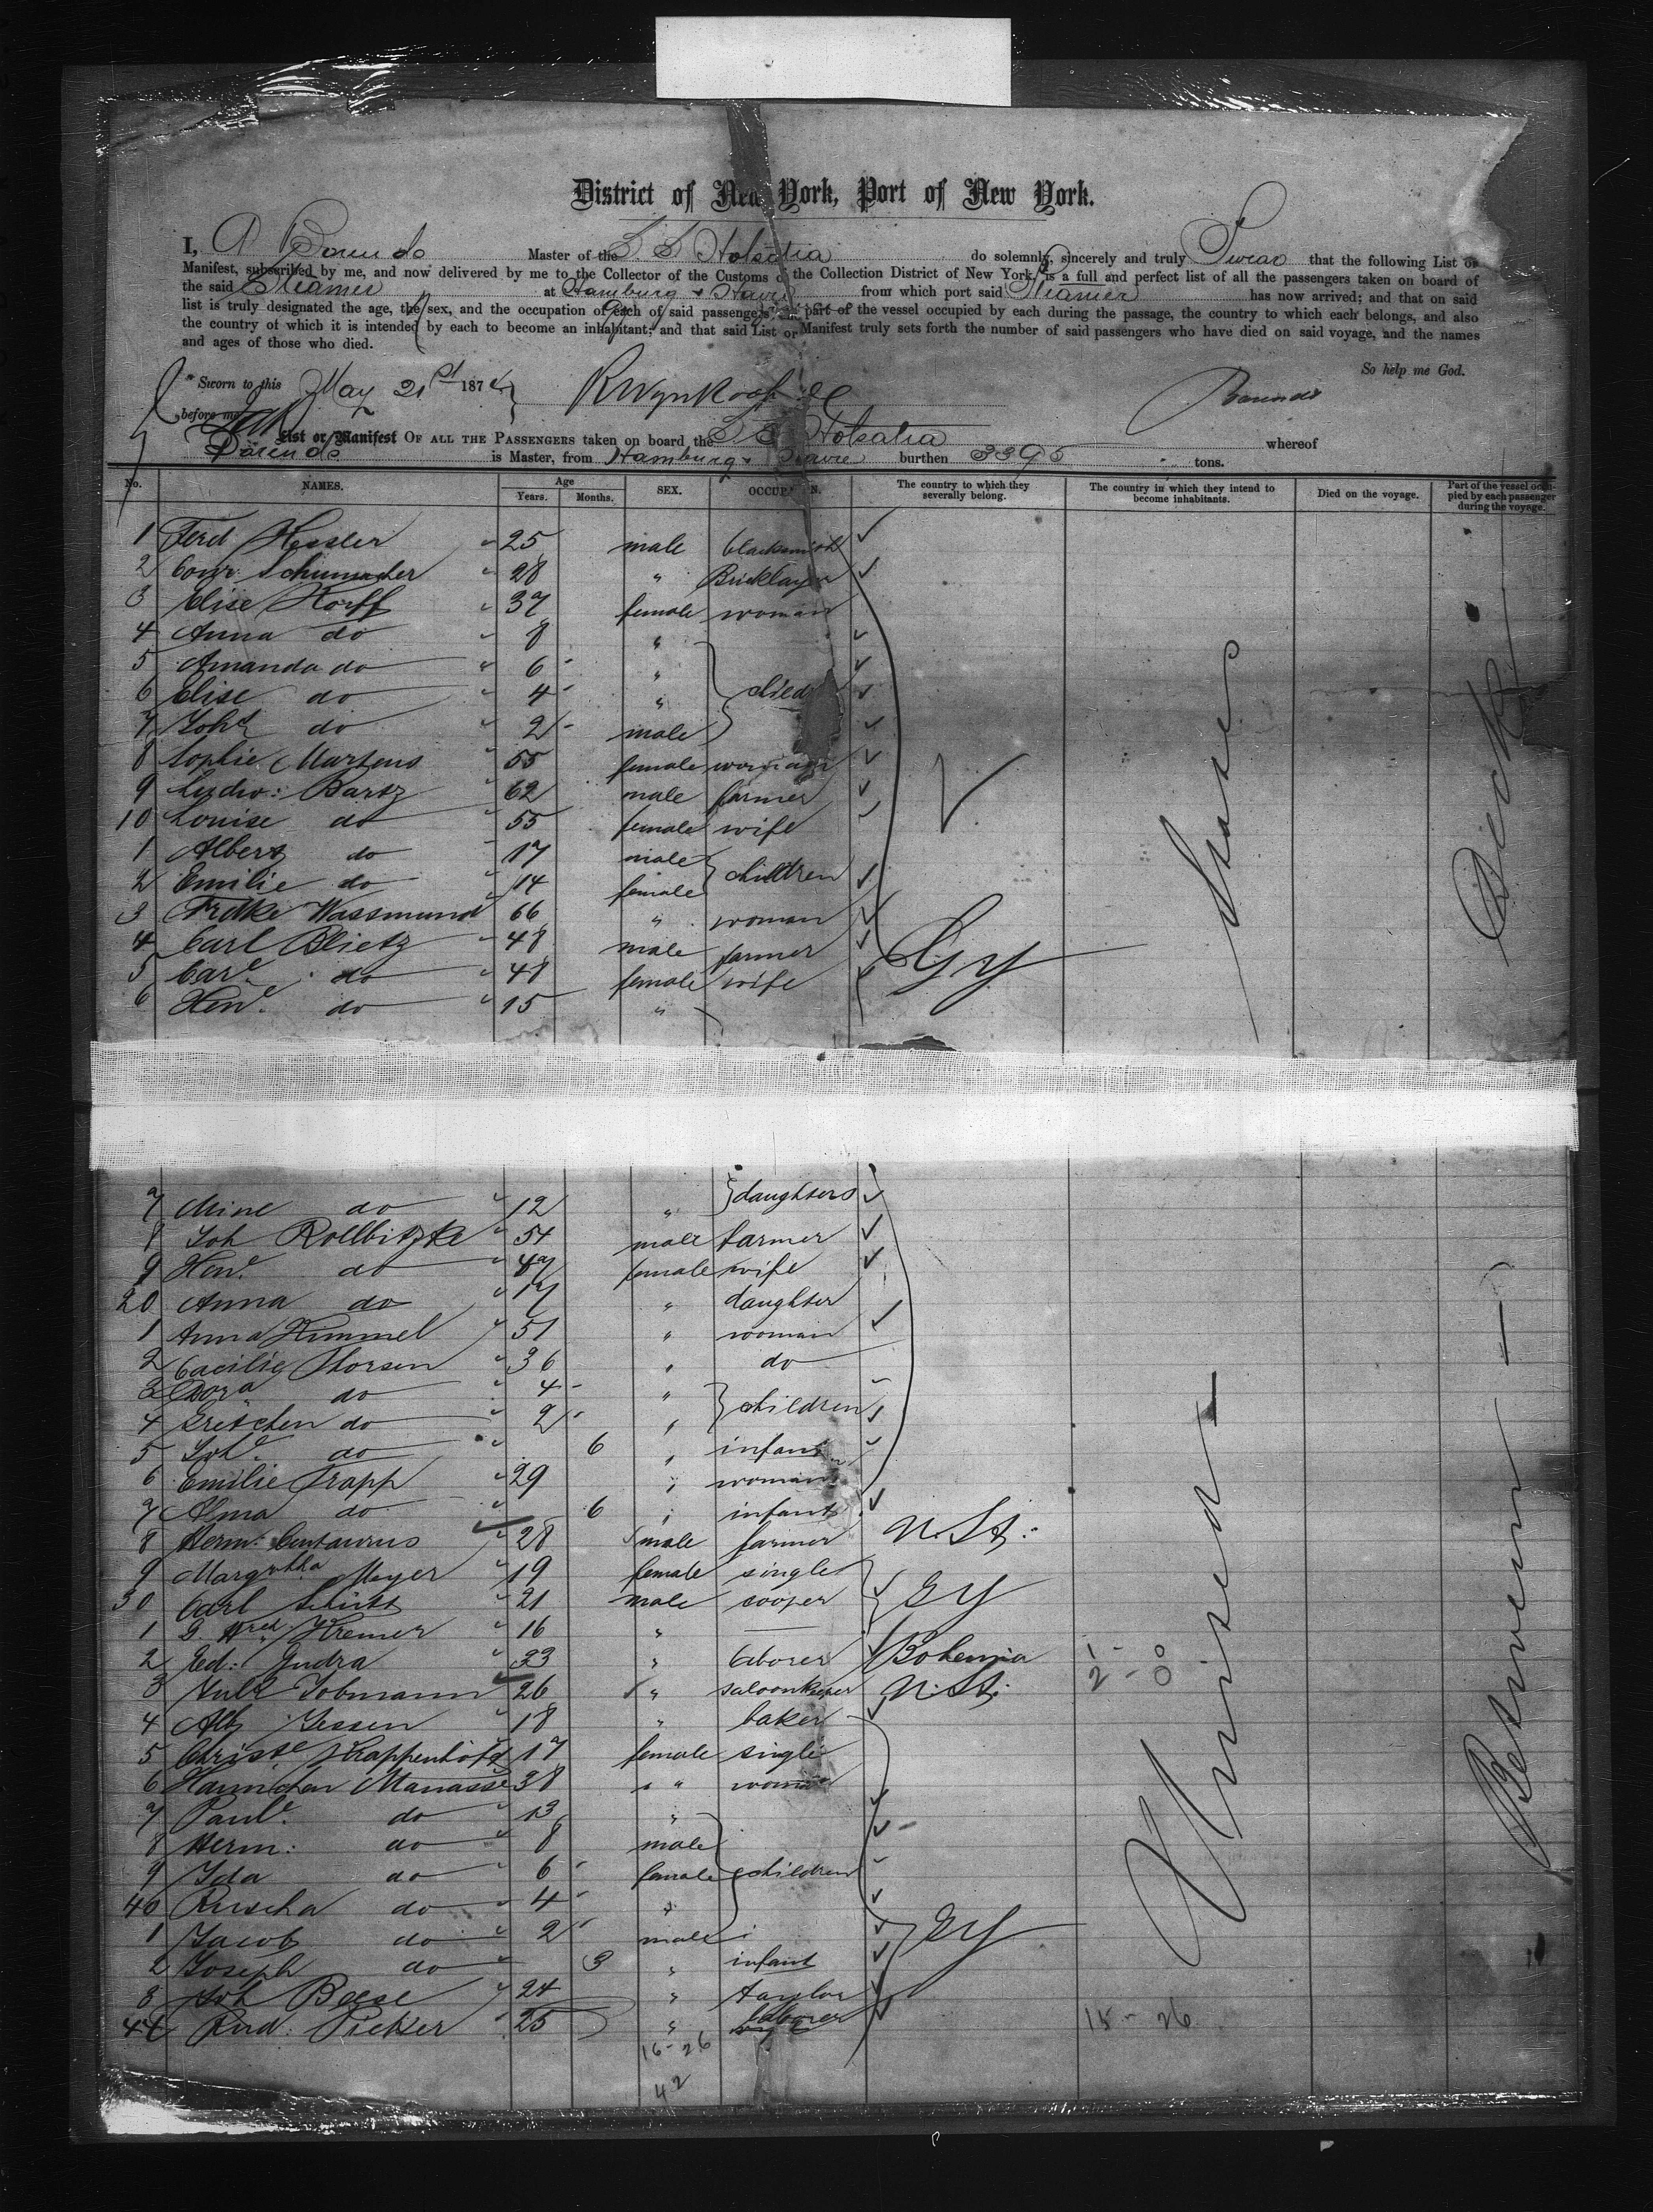 District of New York, Port of New York.
I, A Barends Master of the S. S. Holsatia do solemnly, sincerely and truly Swear that the following List or
Manifest, subscribed by me, and now delivered by me to the Collector of the Customs of the Collection District of New York, is a full and perfect list of all the passengers taken on board of
the said Steamer at Hamburg & Havre from which port said Steamer has now arrived; and that on said
list is truly designated the age, the sex, and the occupation of each of said passengers, the part of the vessel occupied by each during the passage, the country to which each belongs, and also
the country of which it is intended by each to become an inhabitant; and that said List or Manifest truly sets forth the number of said passengers who have died on said voyage, and the names
and ages of those who died.
So help me God.
Sworn to this May 21st 1874
before me
RWynkoop
Barends
List or Manifest OF ALL THE PASSENGERS taken on board the S S Holsatia whereof
Barends is Master, from Hamburg & Havre burthen 3395 tons.
No. NAMES. Age Years. Months. SEX. OCCUPATION. The country to which they severally belong. The country in which they intend to become inhabitants. Died on the voyage. Part of the vessel occupied by each passenger during the voyage.
1 Ferd Hessler 25 male blacksmith
2 Conr: Schumacher 28 " Bricklayer
3 Elise Korff 37 female woman
4 Anna do 8 "
5 Amanda do 6 "
6 Elise do 4 " child
7 Joh do 2 male
8 Sophie Martens 55 female woman
9 Ludw: Bartz 62 male farmer
10 Louise do 55 female wife
1 Albert do 17 male children
2 Emilie do 14 female
3 Fredke Wassmund 66 " woman
4 Carl Blietz 48 male farmer Gy
5 Care do 48 female wife
6 Hene. do 15 "
7 Mine do 12 " daughters
8 Joh Rollbitzke 54 male farmer
9 Hene. do 47 female wife
20 Anna do 17 " daughter
1 Anna Kimmel 51 " woman
2 Cacilie Thorsen 36 " do
3 Dora do 4 "
4 Gretchen do 2 " children
5 Johe. do 6 " infant
6 Emilie Trapp 29 " woman
7 Alma do 6 " infant
8 Herm: Centaurus 28 male farmer N. St.
9 Margretha Meyer 19 female single
30 Carl Schütt 21 male cooper Gy
1 Kremer 16 "
2 Ed: Gudra 23 " laborer Bohemia
3 Jobmann 26 " saloonkeeper N. St.
4 Alb Jessen 18 " baker
5 Christe. Krappenhöft 17 female single
6 Hannchen Manasse 38 " woman
7 Paule. do 13 "
8 Herm: do 8 male
9 Ida do 6 female children
40 Ruscha do 4 "
1 Jacob do 2 male Gy
2 Joseph do 3 " infant
3 Joh Beese 24 " taylor
44 Rud: Picker 25 " laborer
16-26
42
1 - 0
2 - 0
15 - 26
United States
Between Deck